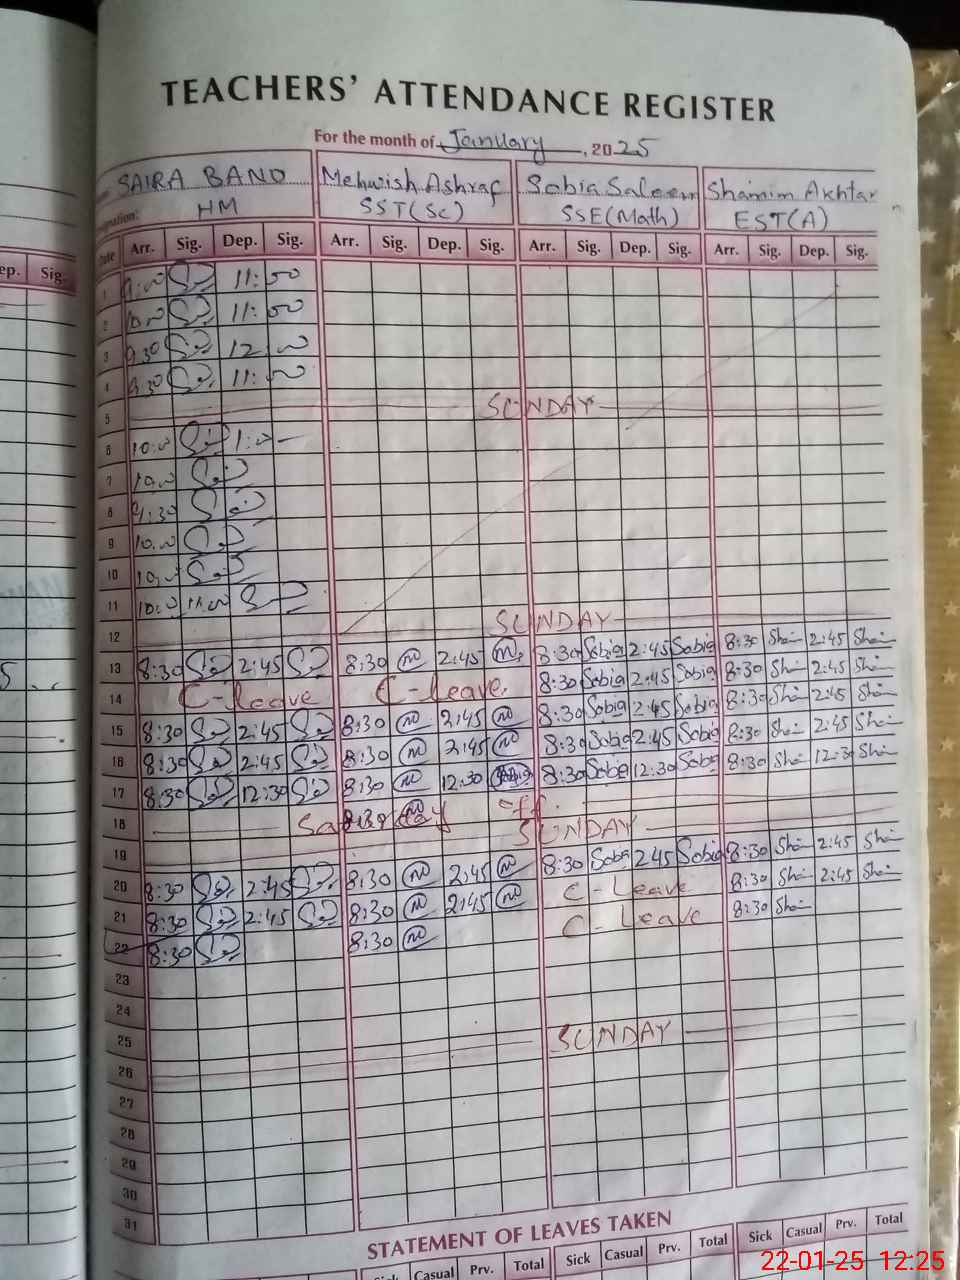 TEACHERS' ATTENDANCE REGISTER
For the month of January, 2025
SAIRA BANO Mehwish Ashraf Sobia Saleem Shamim Akhtar
HM SST(Sc) SSE(Math) EST(A)
Date Arr. Sig. Dep. Sig. Arr. Sig. Dep. Sig. Arr. Sig. Dep. Sig. Arr. Sig. Dep. Sig.
ep. Sig.
1 11:00
2 11:00
3 9.30 12
4 9.30 11:00
5 SUNDAY
6 10:00
7
8 9:30
9 10.00
10
11
12 SUNDAY
13 8:30 2:45 8:30 m 2:45 m 8:30 Sobia 2:45 Sobia 8:30 Sha 2:45 Sha
14 C-leave C-leave. 8:30 Sobia 2:45 Sobia 8:30 Sha 2:45 Sha
15 8:30 2:45 8:30 m 2:45 m 8:30 Sobia 2:45 Sobia 8:30 Sha 2:45 Sha
16 8:30 2:45 8:30 m 2:45 m 8:30 Sobia 2:45 Sobia 8:30 Sha 2:45 Sha
17 8:30 12:30 8:30 m 12:30 8:30 Sobia 12:30 Sobia 8:30 Sha 12:30 Sha
18 Saturday off.
19 SUNDAY
20 8:30 2:45 8:30 m 2:45 m 8:30 Sobia 2:45 Sobia 8:30 Sha 2:45 Sha
21 8:30 2:45 8:30 m 2:45 m C-Leave 8:30 Sha 2:45 Sha
22 8:30 8:30 m C-Leave 8:30 Sha
23
24
25
26 SUNDAY
27
28
29
30
31
STATEMENT OF LEAVES TAKEN
Casual Prv. Total Sick Casual Prv. Total Sick Casual Prv. Total
22-01-25 12:25